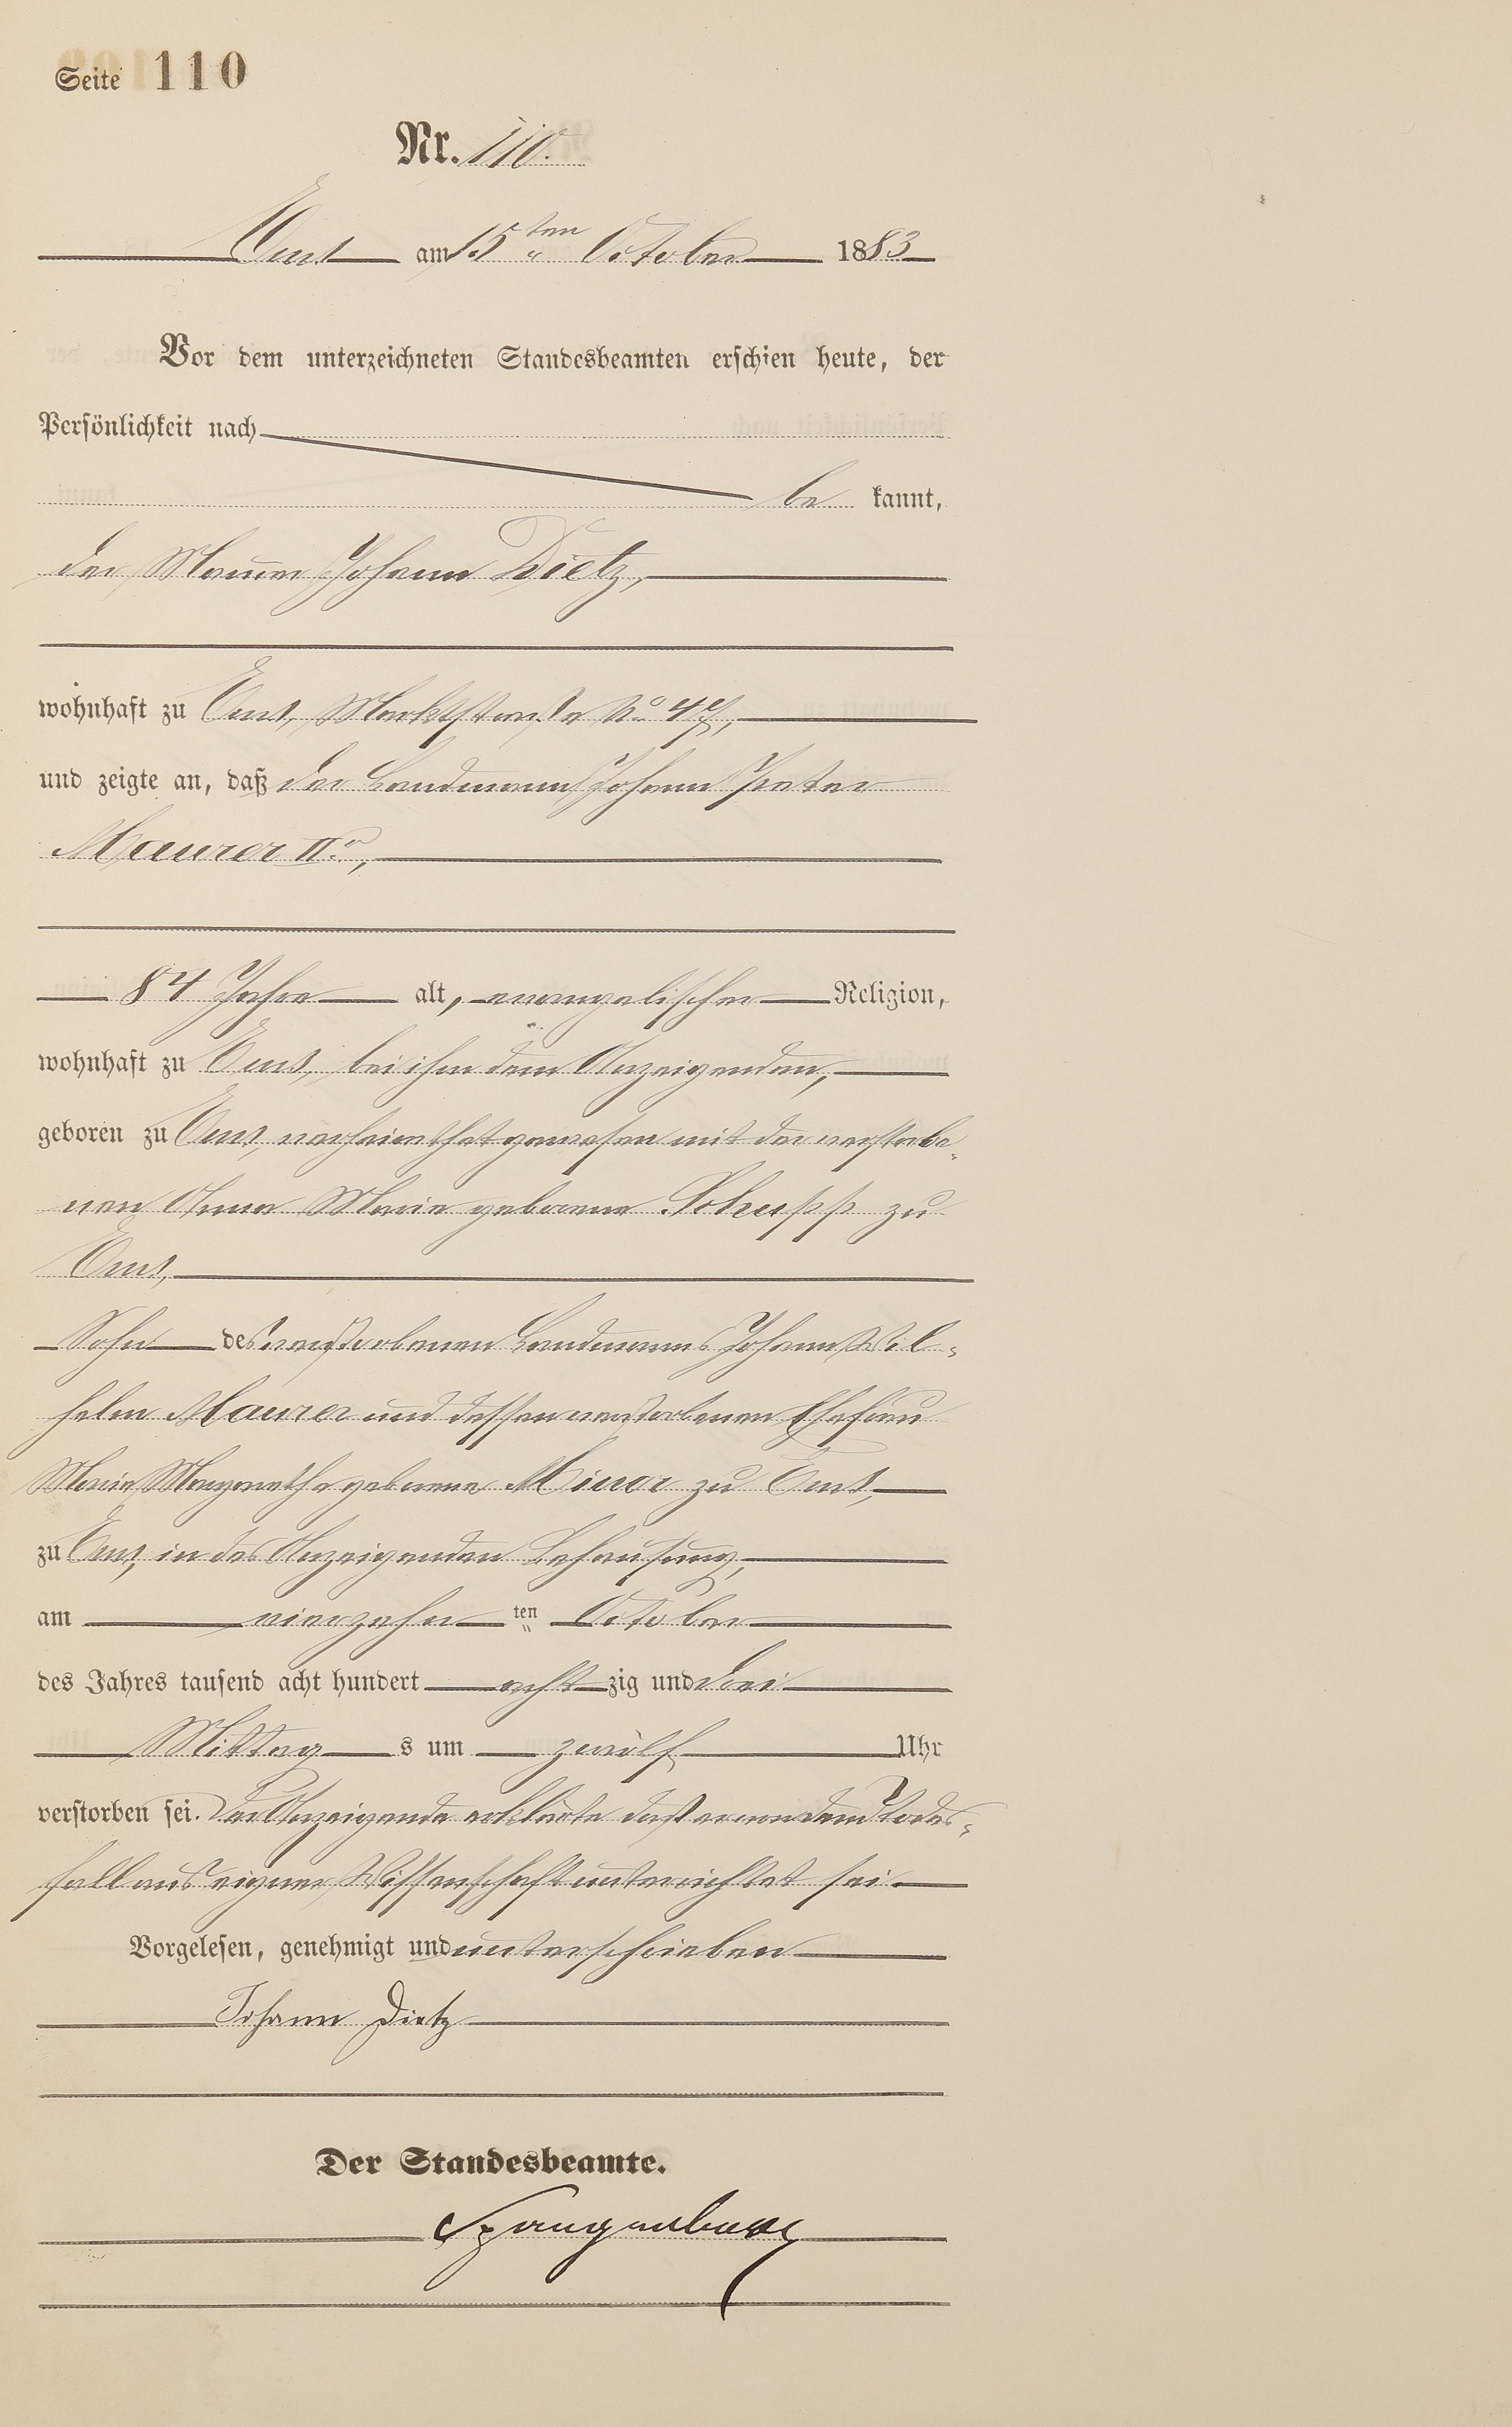 Seite 110
Nr. 110.
Ems am 15ten October 1883
Vor dem unterzeichneten Standesbeamten erschien heute, der
Persönlichkeit nach
be kannt,
der Maurer Johann Dietz,
wohnhaft zu Ems, Marktstraße No
und zeigte an, daß der Landmann Johann Peter
Maurer IIr,
84 Jahre alt, evangelischer Religion,
wohnhaft zu Ems, bei ihm dem Anzeigenden,
geboren zu Ems, verheirathet gewesen mit der verstorbe-
nen Anna Marie geborene Schupp zu
Ems,
Sohn des verstorbenen Landmanns Johann Wil-
helm Maurer und dessen verstorbenen Ehefrau
Marie Margarethe geborene Minor zu Ems,
zu Ems, in des Anzeigenden Behausung,
am vierzehnten October
des Jahres tausend acht hundert acht zig und drei
Mittag s um zwölf Uhr
verstorben sei. Der Anzeigende erklärte daß er von dem Todes-
fall aus eigner Wissenschaft unterrichtet sei.
Vorgelesen, genehmigt und unterschrieben
Johann Dietz
Der Standesbeamte.
Spangenberg